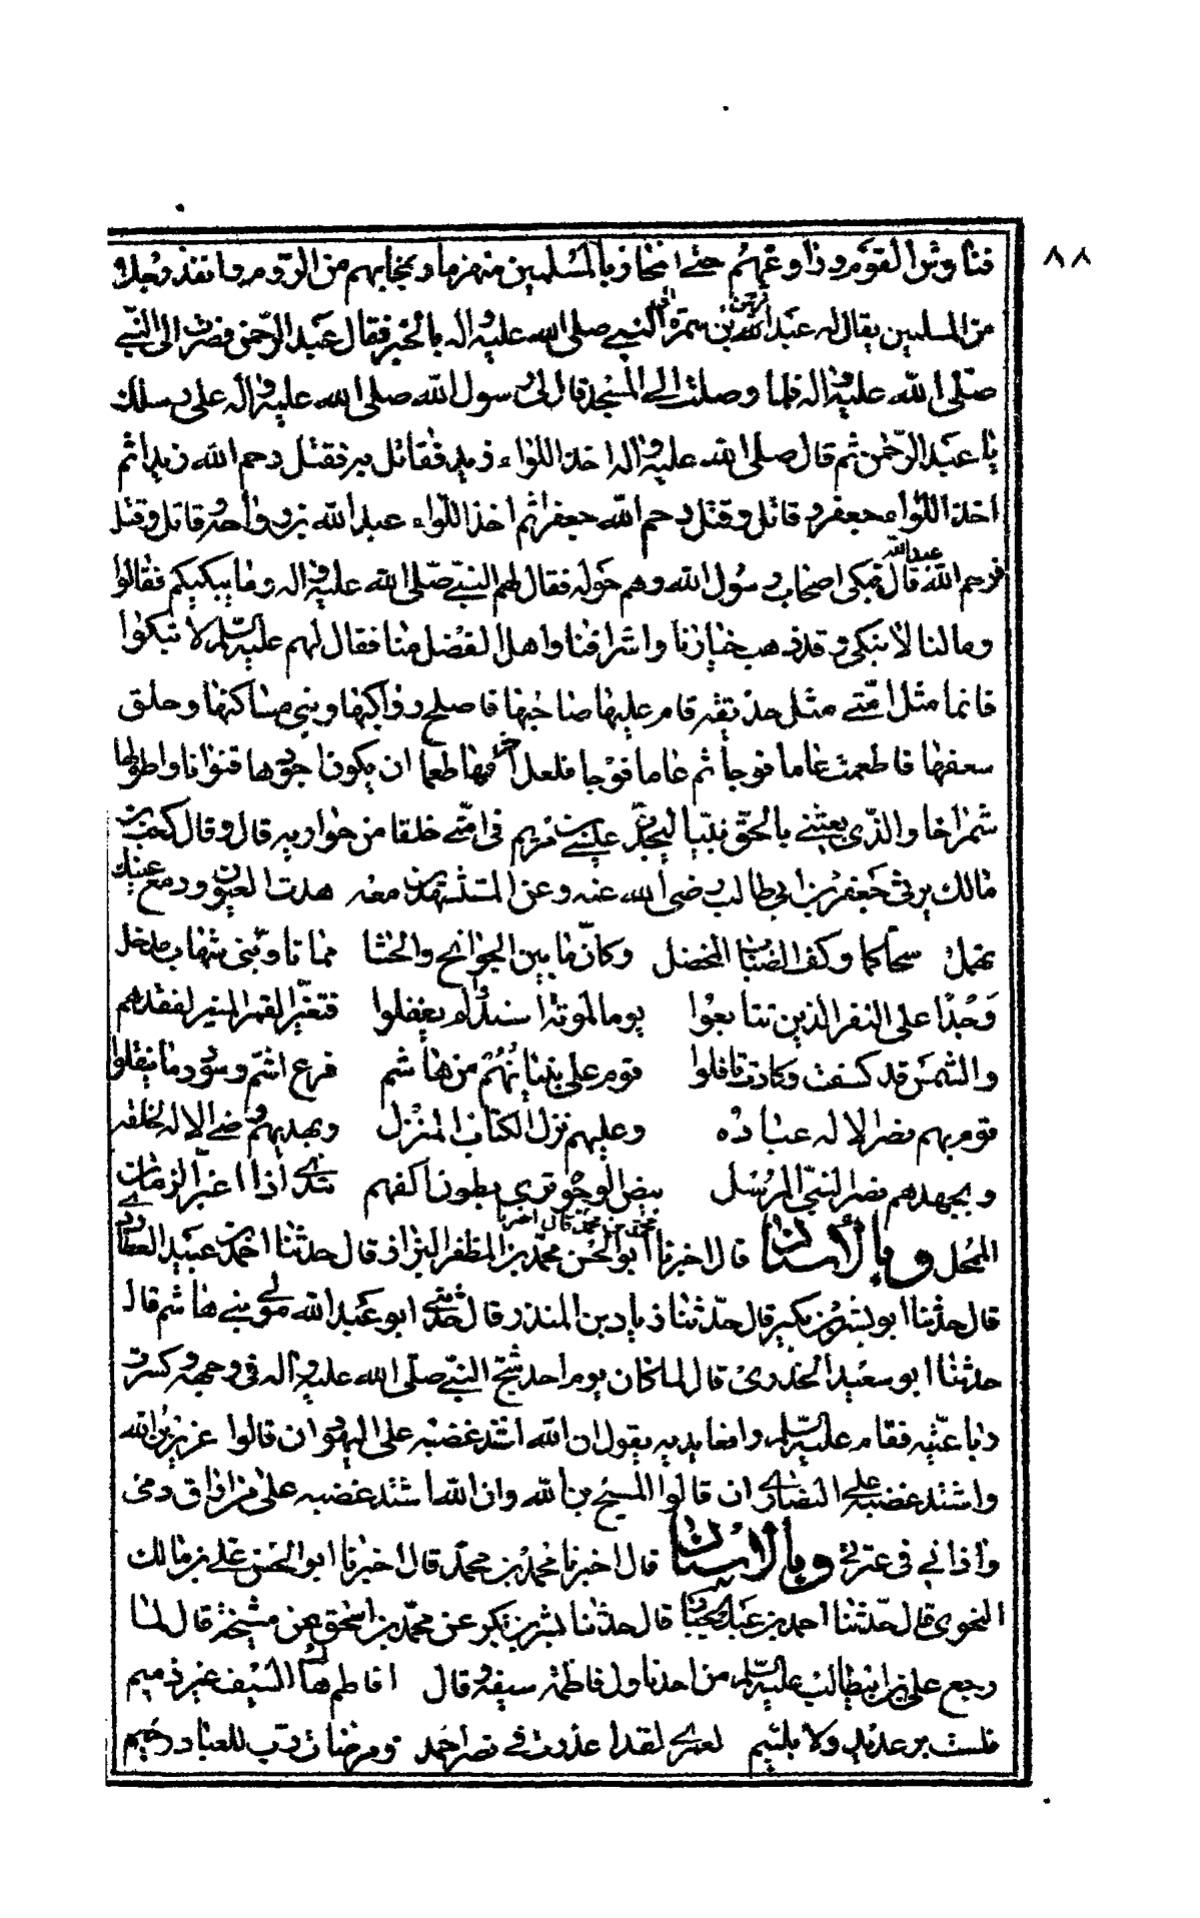 ٨٨
فناوش القوم وذاوعهم حتى انحاز بالمسلمين منهزما وبجابهم من الروم وما نفذ رجلا
من المسلمين يقال له عبد الرحمن بن سمرة الى النبي صلى الله عليه واله بالخبر فقال عبد الرحمن فصرت الى النبي
صلى الله عليه واله فلما وصلت الى المسجد قال لى رسول الله صلى الله عليه واله على رسلك
يا عبد الرحمن ثم قال صلى الله عليه واله اخذ اللواء زيد فقاتل به فقتل رحم الله زيدا ثم
اخذ اللواء جعفر وقاتل وقتل رحم الله جعفرا ثم اخذ اللواء عبد الله بن رواحه وقاتل وقتل
فرحم الله عبد الله قال فبكى اصحاب رسول الله وهم حوله فقال لهم النبي صلى الله عليه واله وما يبكيكم فقالوا
وما لنا لا نبكى وقد ذهب خيارنا واشرافنا واهل الفضل منا فقال لهم عليه السلم لا تبكوا
فانما مثل امتي مثل حديقه قام عليها صاحبها فاصلح رواكبها وبنى مساكنها وحلق
سعفها فاطعمت عاما فوجا ثم عاما فوجا فلعل اخرها طعما ان يكون اجودها قنوانا واطولها
شمراخا والذي بعثني بالحق نبيا ليجدن عيسى بن مريم في امتي خلقا من حواريه قال وقال كعب بن
مالك يرثى جعفر بن ابي طالب رضى الله عنه وعن المستشهدين معه هدت العيون ودمع عينك
يهمل سحا كما وكف الضباب المخضل وكان ما بين الجوانح والحشا مما تاوبنى شهاب مدخل
وجدا على النفر الذين تتابعوا يوما لموته اسندوا لم يغفلوا فتغير القمر المنير لفقدهم
والشمس قد كسفت وكادت تافلوا قوم على بنيانهم من هاشم فرع اشم وسودد ما ينقلوا
قوم بهم نصر الاله عباده وعليهم نزل الكتاب المنزل وبهديهم رضى الاله لخلقه
وبجهدهم نصر النبي المرسل بيض الوجوه ترى بطون اكفهم تندى اذا اغبر الزمان
الممحل وبالاسناد قال اخبرنا محمد بن محمد قال اخبرنا ابو الحسن محمد بن المظفر البزاز قال حدثنا احمد بن عبيد العطاردى
قال حدثنا ابو بشر بن بكير قال حدثنا زياد بن المنذر قال حدثني ابو عبد الله مولى بني هاشم قال
حدثنا ابو سعيد الخدرى قال لما كان يوم احد شج النبي صلى الله عليه واله في وجهه وكسرت
رباعيته فقام عليه السلم رافعا يديه يقول ان الله اشتد غضبه على اليهود ان قالوا عزير بن الله
واشتد غضبه على النصارى ان قالوا المسيح بن الله وان الله اشتد غضبه على من اراق دمى
واذاني في عترتي وبالاسناد قال اخبرنا محمد بن محمد قال اخبرنا ابو الحسن على بن مالك
النحوى قال حدثنا احمد بن عبد الجبار قال حدثنا بشر بن بكر عن محمد بن اسحق عن مشيخته قال لما
رجع على بن ابيطالب عليه السلم من احد ناول فاطمه سيفه وقال افاطم هاك السيف غير ذميم
فلست برعديد ولا بلئيم لعمرى لقد اعذرت في نصر احمد ومرضات رب للعباد رحيم